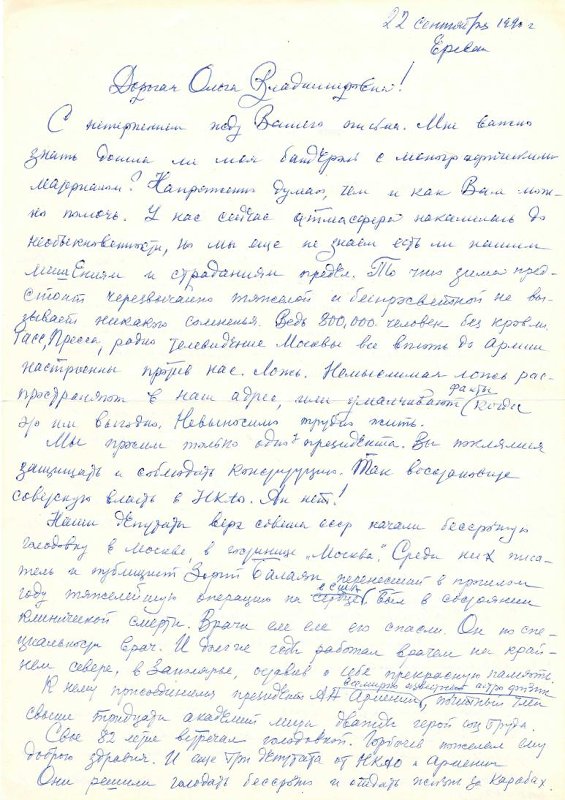 22 сентября 1990 г
Ереван
Дорогая Ольга Владимировна!
С нетерпением жду Вашего письма. Мне важно
знать дошла ли моя бандероль с монографическими
материалами? Напряженно думаю, чем и как Вам мож-
но помочь. У нас сейчас атмосфера накалилась до
необыкновенности, но мы еще не знаем есть ли нашим
лишениям и страданиям предел. То что зима пред-
стоит черезвычайно тяжелой и беспросветной не вы-
зывает никакого сомненья. Ведь 800,000 человек без крова.
Тасс, Пресса, радио телевидение Москвы все вплоть до Армии
настроены против нас. Ложь. Немыслимая ложь рас-
пространяют в наш адрес, или умалчивают факты когда
это им выгодно. Невыносимо трудно жить.
Мы просим только одно у президента. Вы поклялися
защищать и соблюдать конституцию. Так восстановите
советскую власть в НКАО. Ан нет!
Наши депутаты верх совета ссср начали бессрочную
голодовку в Москве, в гостинице "Москва". Среди них писа-
тель и публицист Зорий Балаян, перенесший в прошлом
году тяжелейшую операцию на сердце в США, был в состоянии
клинической смерти. Врачи еле еле его спасли. Он по спе-
циальности врач. И долгие годы работал врачем на край-
нем севере, в Заполярье, оставив о себе прекрасную память.
К нему присоединился президент АН Армении, всемирно известный астро физик почетный член
свыше тридцати академий мира дважды герой соц труда.
Свое 82 летие встречал голодовкой. Горбачев пожелал ему
доброго здравия. И еще три депутата от НКАО и Армении
Они решили голодать бессрочно и отдать жизнь за Карабах